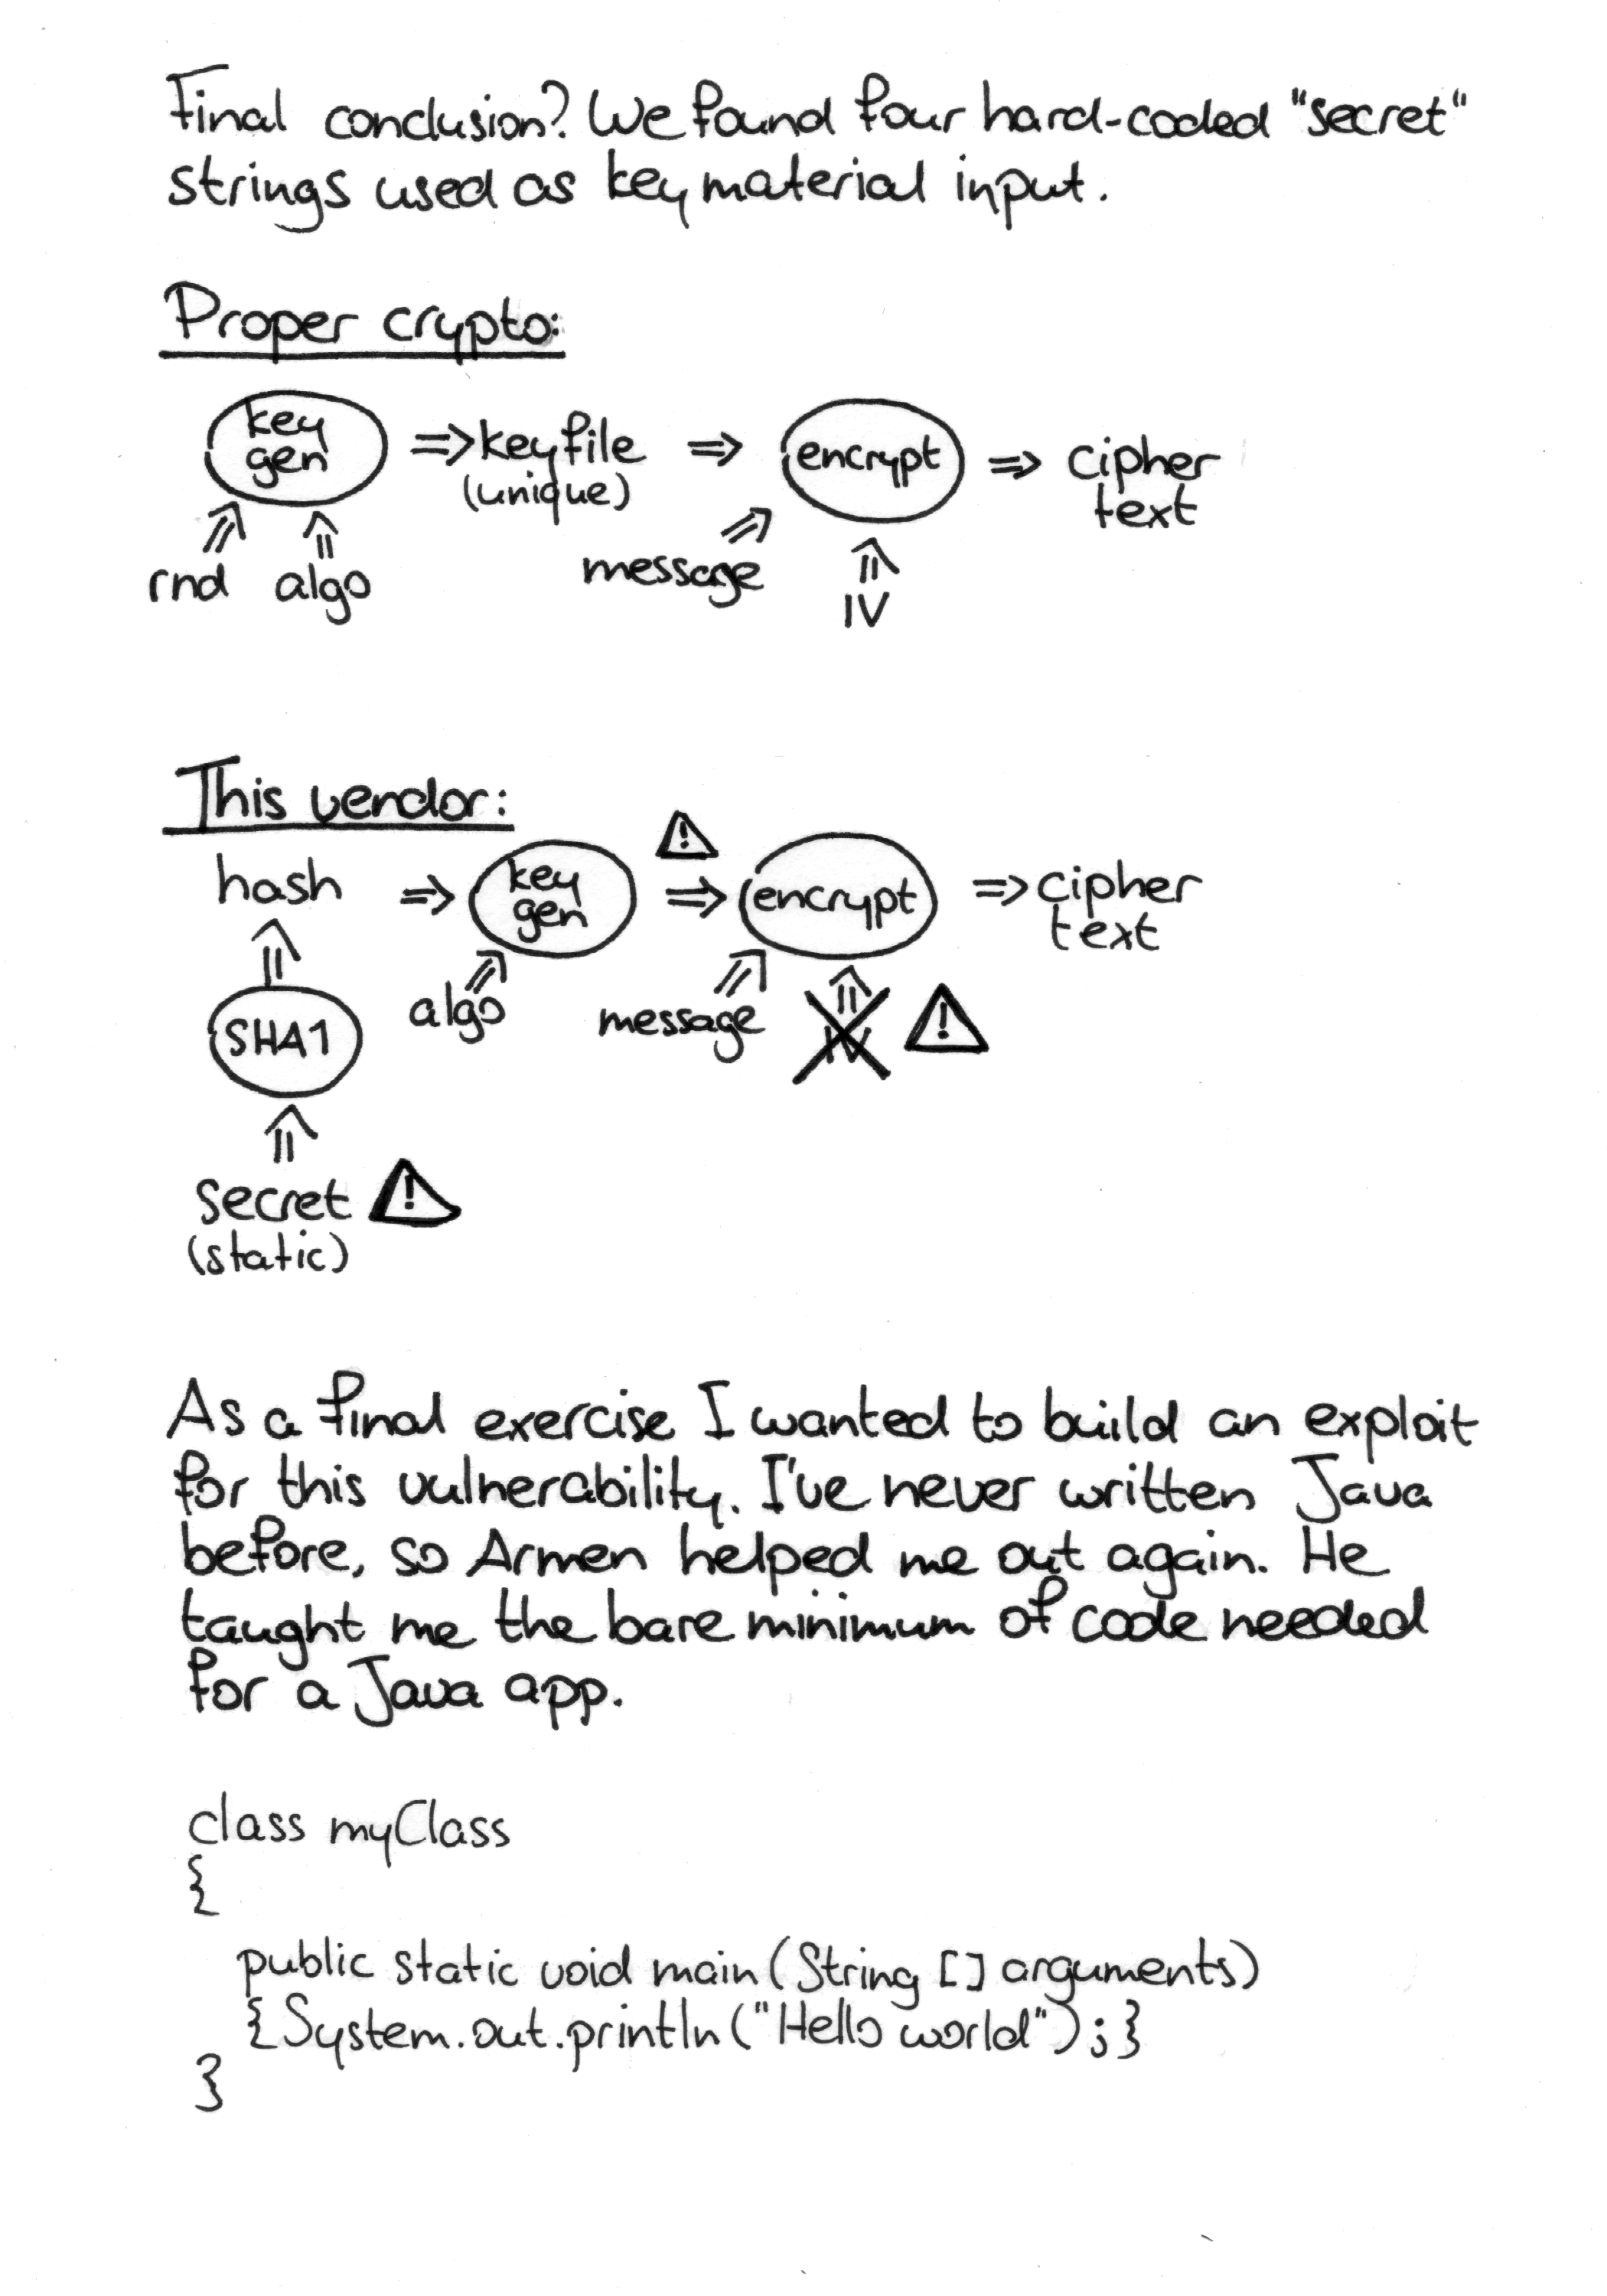 Final conclusion? We found four hard-coded "secret"
strings used as key material input.
Proper crypto:
key
gen
=> keyfile
(unique)
=>
encrypt
=> cipher
text
rnd
algo
message
IV
This vendor:
hash
=>
key
gen
!
=>
encrypt
=> cipher
text
SHA1
algo
message
IV
!
secret
!
(static)
As a final exercise I wanted to build an exploit
for this vulnerability. I've never written Java
before, so Armen helped me out again. He
taught me the bare minimum of code needed
for a Java app.
class myClass
{
public static void main (String [] arguments)
{System.out.println ("Hello world");}
}